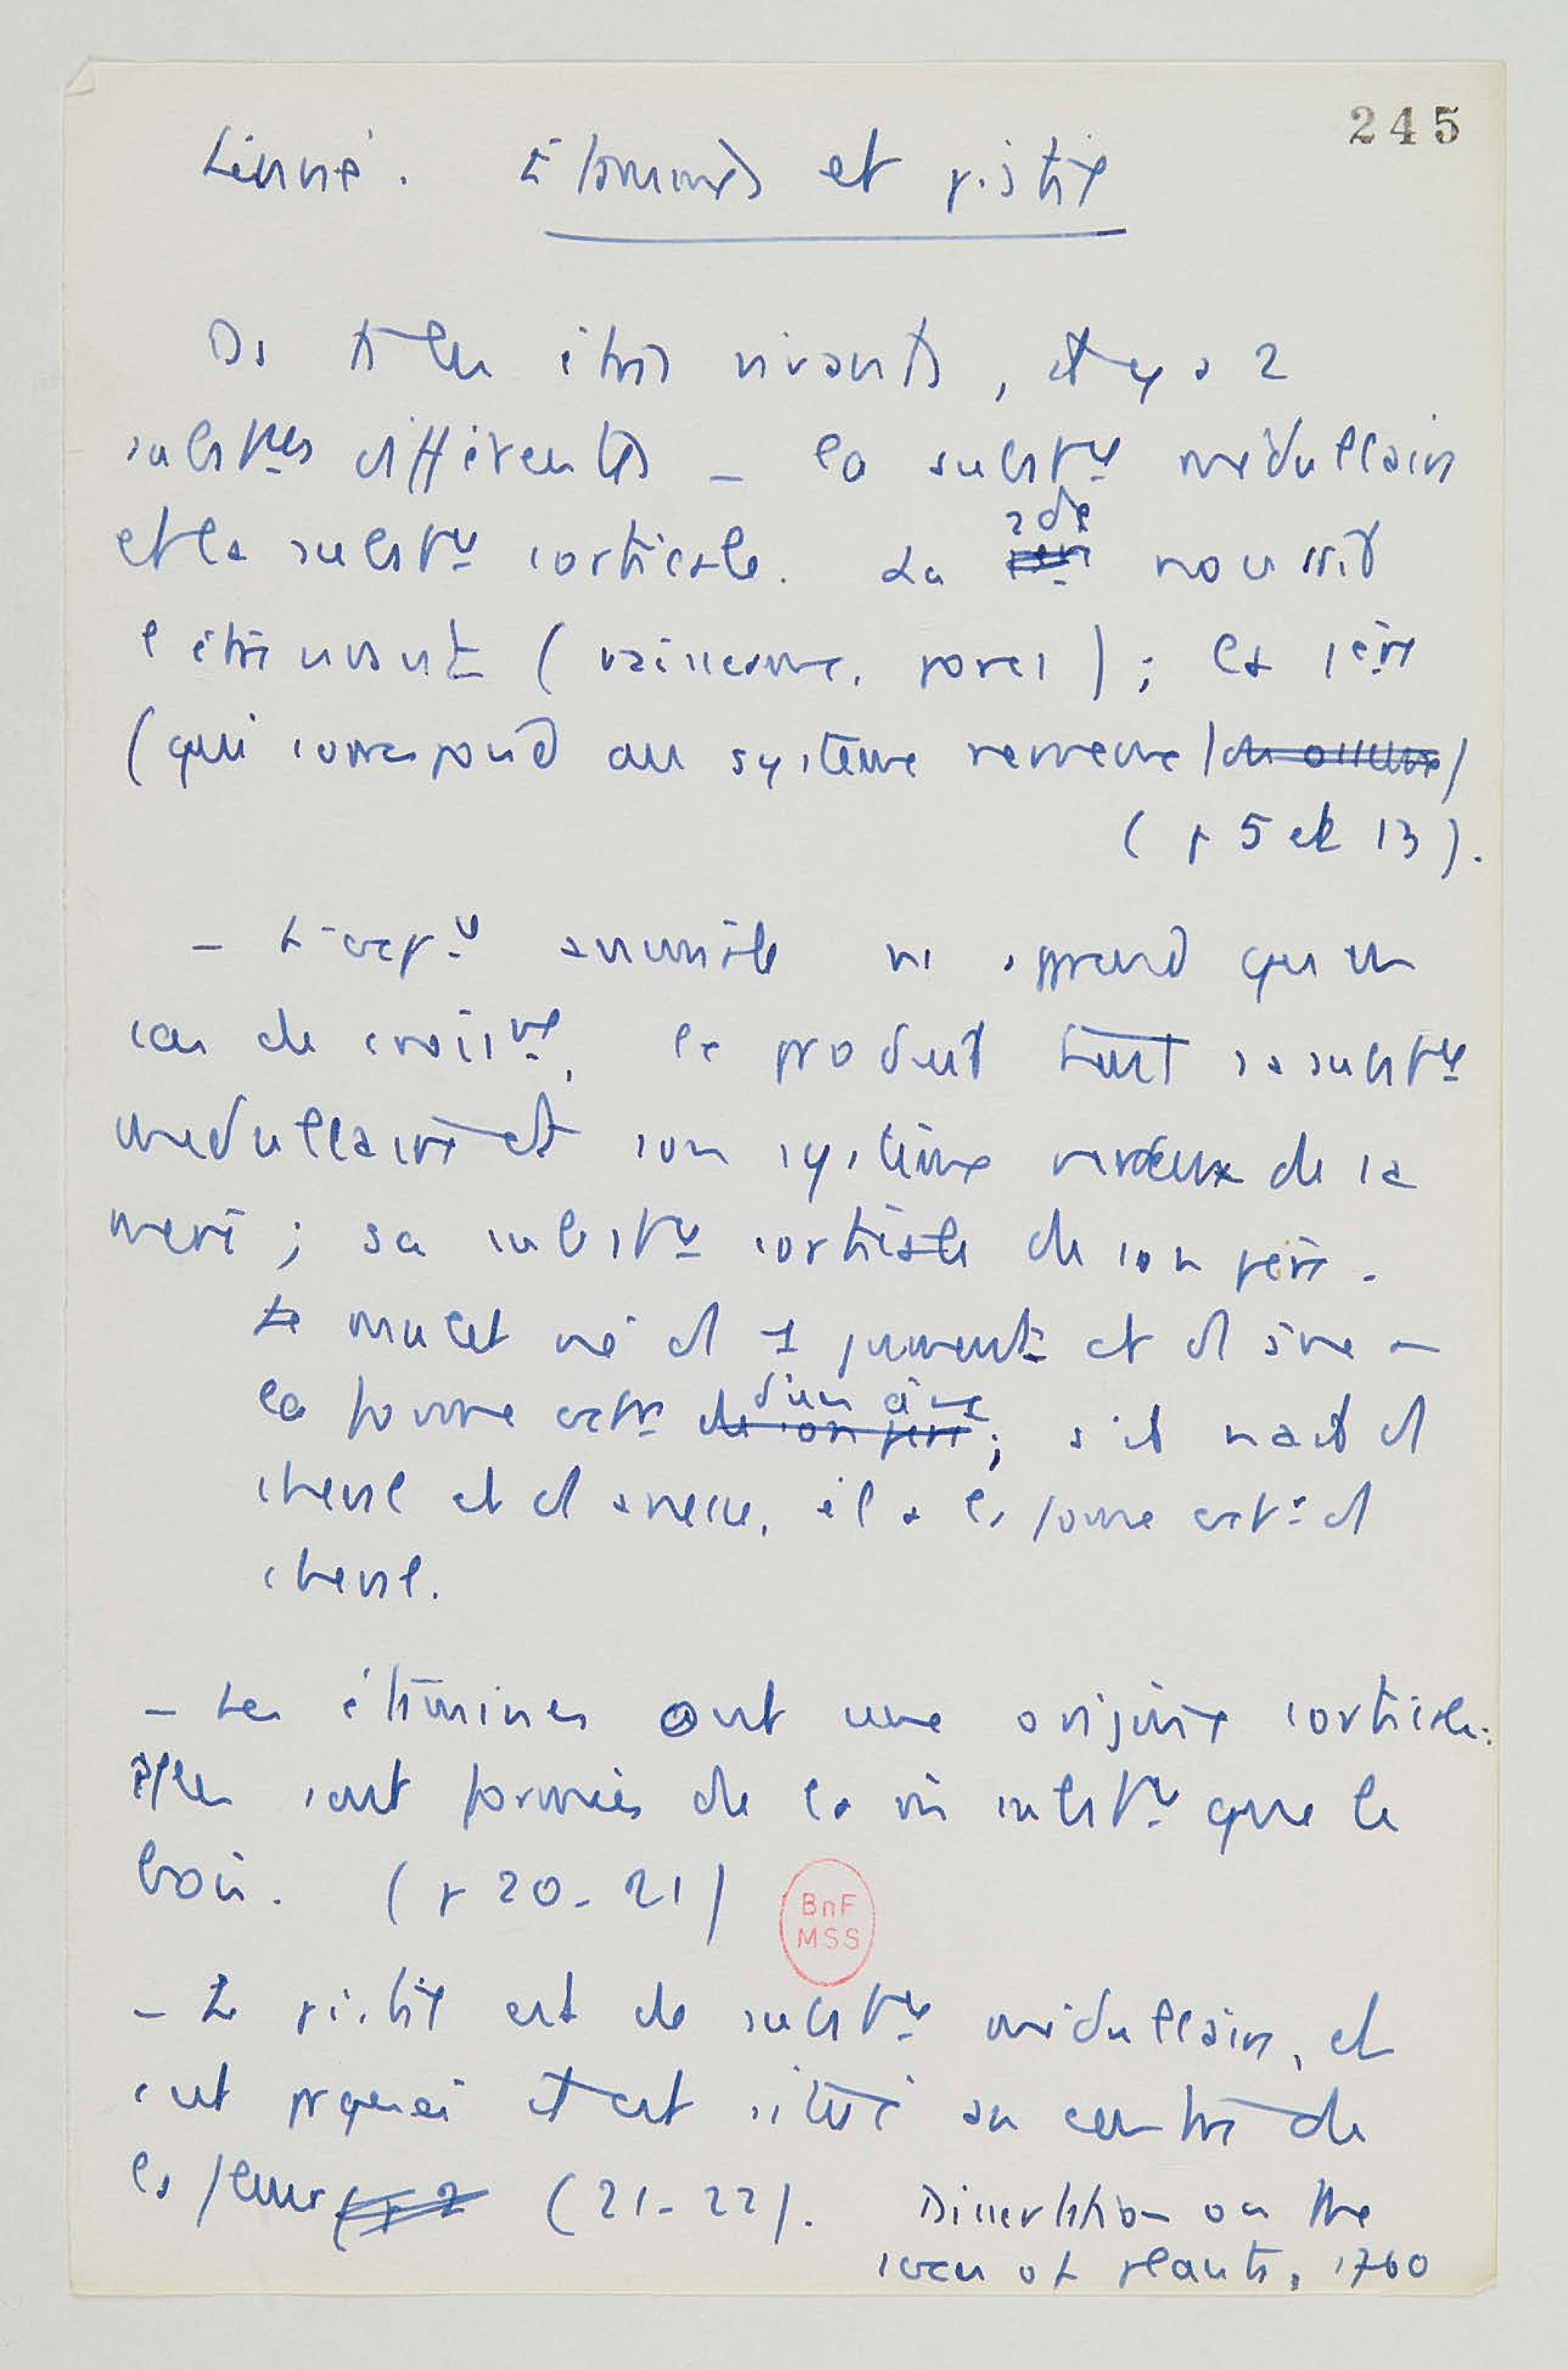 245
Linné. Etamines et pistil
Ds ts les êtres vivants, il y a 2
substces différentes – la substce médullaire
et la substce corticale. La 2de nourrit
l'être vivant (vaisseaux, pores) ; la 1ère
(qui correspond au système nerveux
(p 5 et 13).
– L' animale ne apprend qu'un
cas de croisce, le produit tient sa substce
medullaire et son système nerveux de sa
mere ; sa substce corticale de son père.
Le mulet né d 1 jument et d âne a
la forme extre d'un âne ; s'il nait d
cheval et d anesse, il a la forme extre d
cheval.
– Les étamines ont une origine corticale :
Elles sont formées de la m substce que le
bois. (p 20-21)
BnF
MSS
– Le pistil est de substce médullaire, et
c'est pquoi il est situé au centre de
la fleur (21-22). Dissertation on the
sexes of plants, 1760